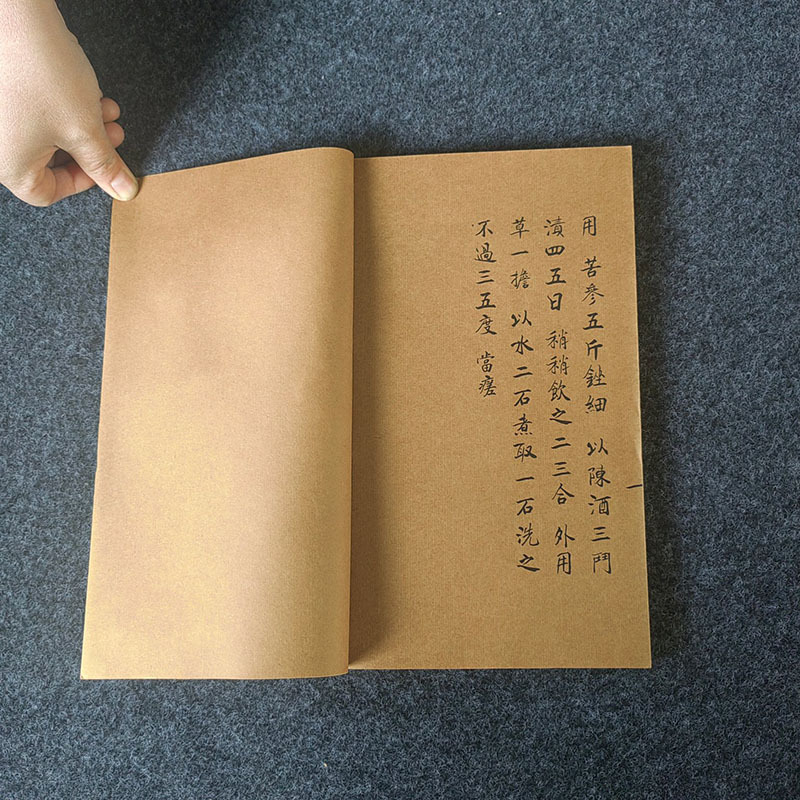 用 苦參五斤銼細 以陳酒三鬥
漬四五日 稍稍飲之二三合 外用
草一擔 以水二石煮取一石洗之
不過三五度 當瘥
一